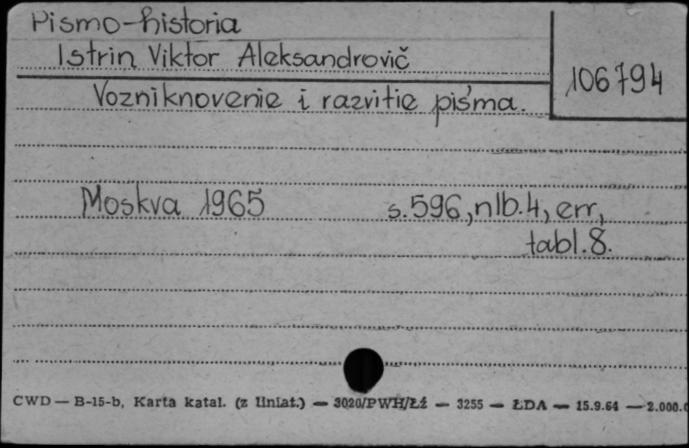 Pismo-historia
Istrin Viktor Aleksandrovič
106794
Vozniknovenie i razvitie piśma.
Moskva 1965 s. 596, nlb. 4, err,
tabl. 8.
CWD — B-15-b, Karta katal. (z liniat.) — 3020/PWH/Łź — 3255 — ŁDA — 15.9.64 — 2.000.0